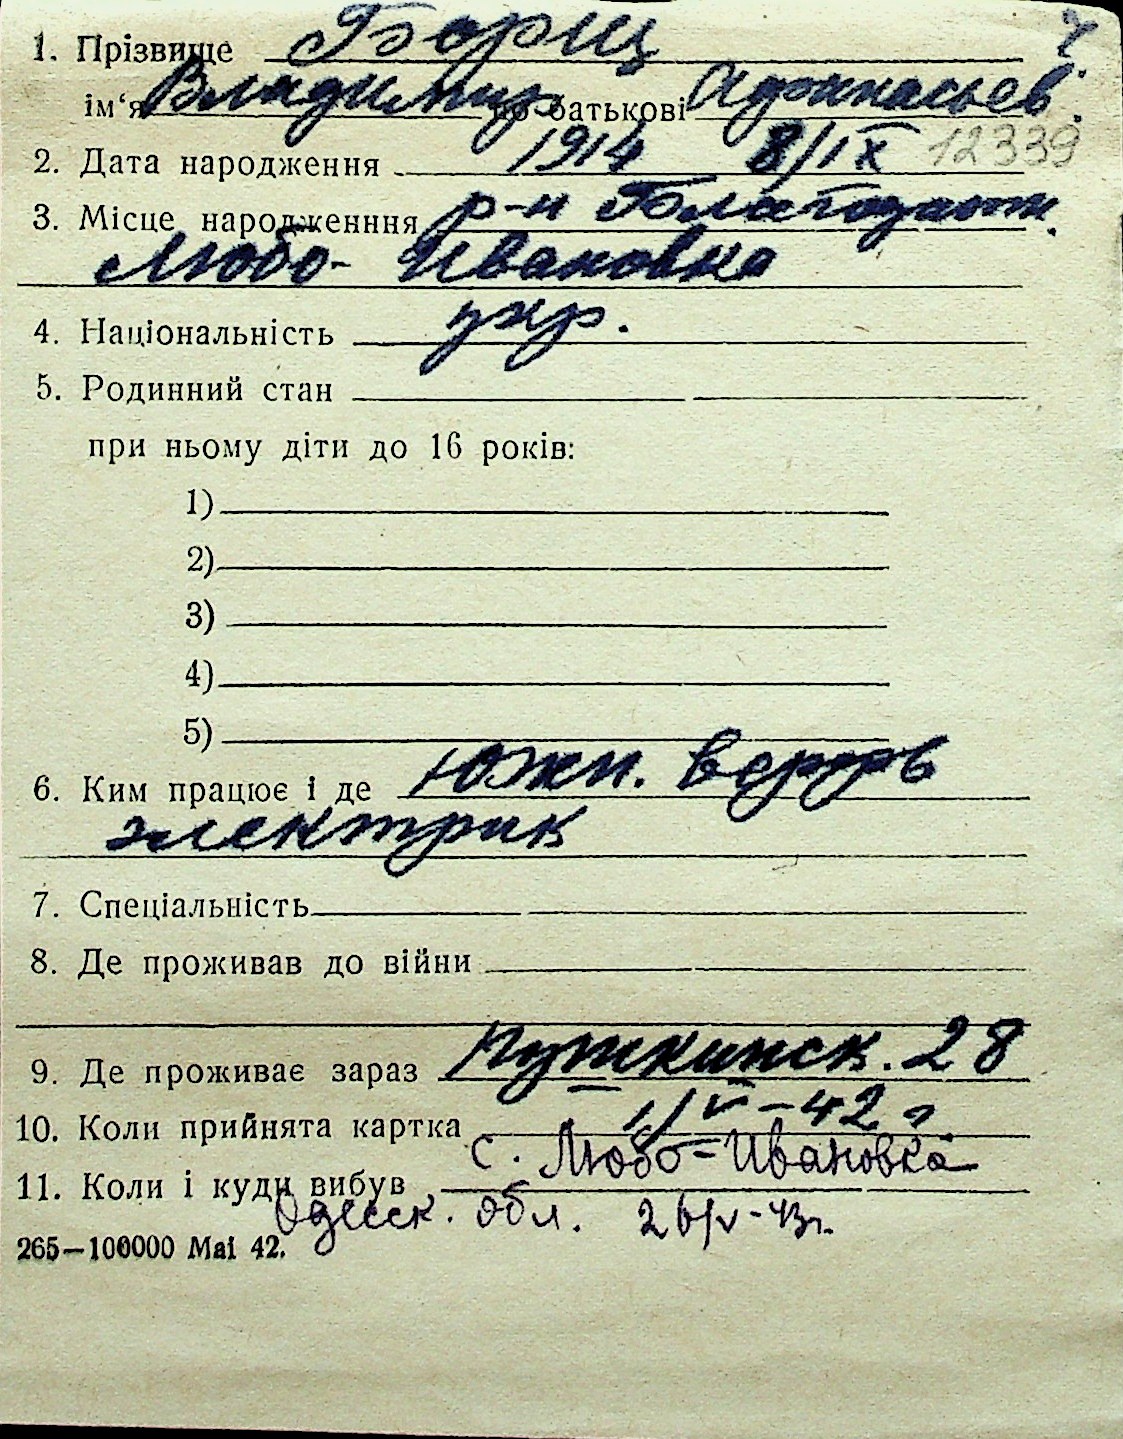 1. Прізвище Борщ
ім‘я Владимир по батькові Афанасьев.
2. Дата народження 1914 8/IX 12339
3. Місце народженння р-н Благодатн.
Любо-Ивановка
4. Національність укр.
5. Родинний стан
при ньому діти до 16 років:
1)
2)
3)
4)
5)
6. Ким працює і де Южн. верфь
электрик
7. Спеціальність
8. Де проживав до війни
9. Де проживає зараз Пушкинск. 28
10. Коли прийнята картка 1/V-42 г
11. Коли і куди вибув с. Любо-Ивановка
Одесск. обл. 26/V-43г.
265—100000 Mai 42.